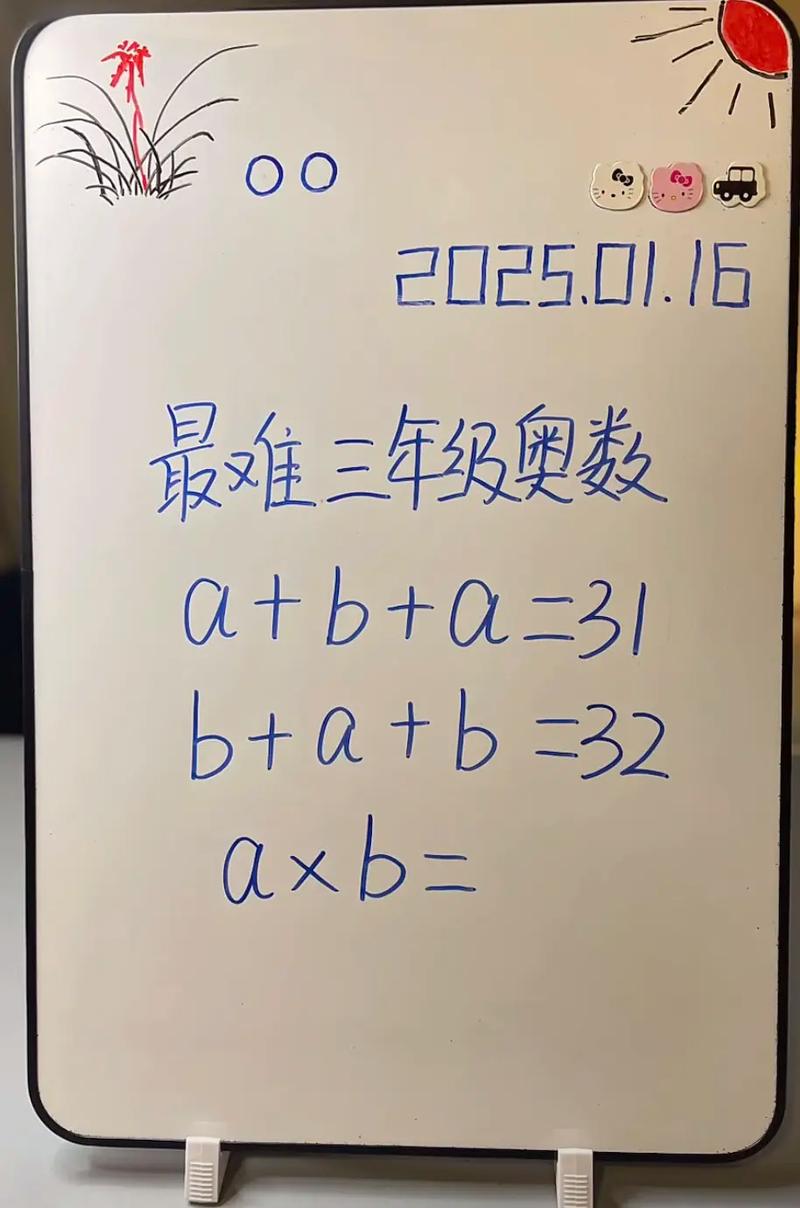 OO
2025.01.16
最难三年级奥数
a+b+a=31
b+a+b=32
a×b=